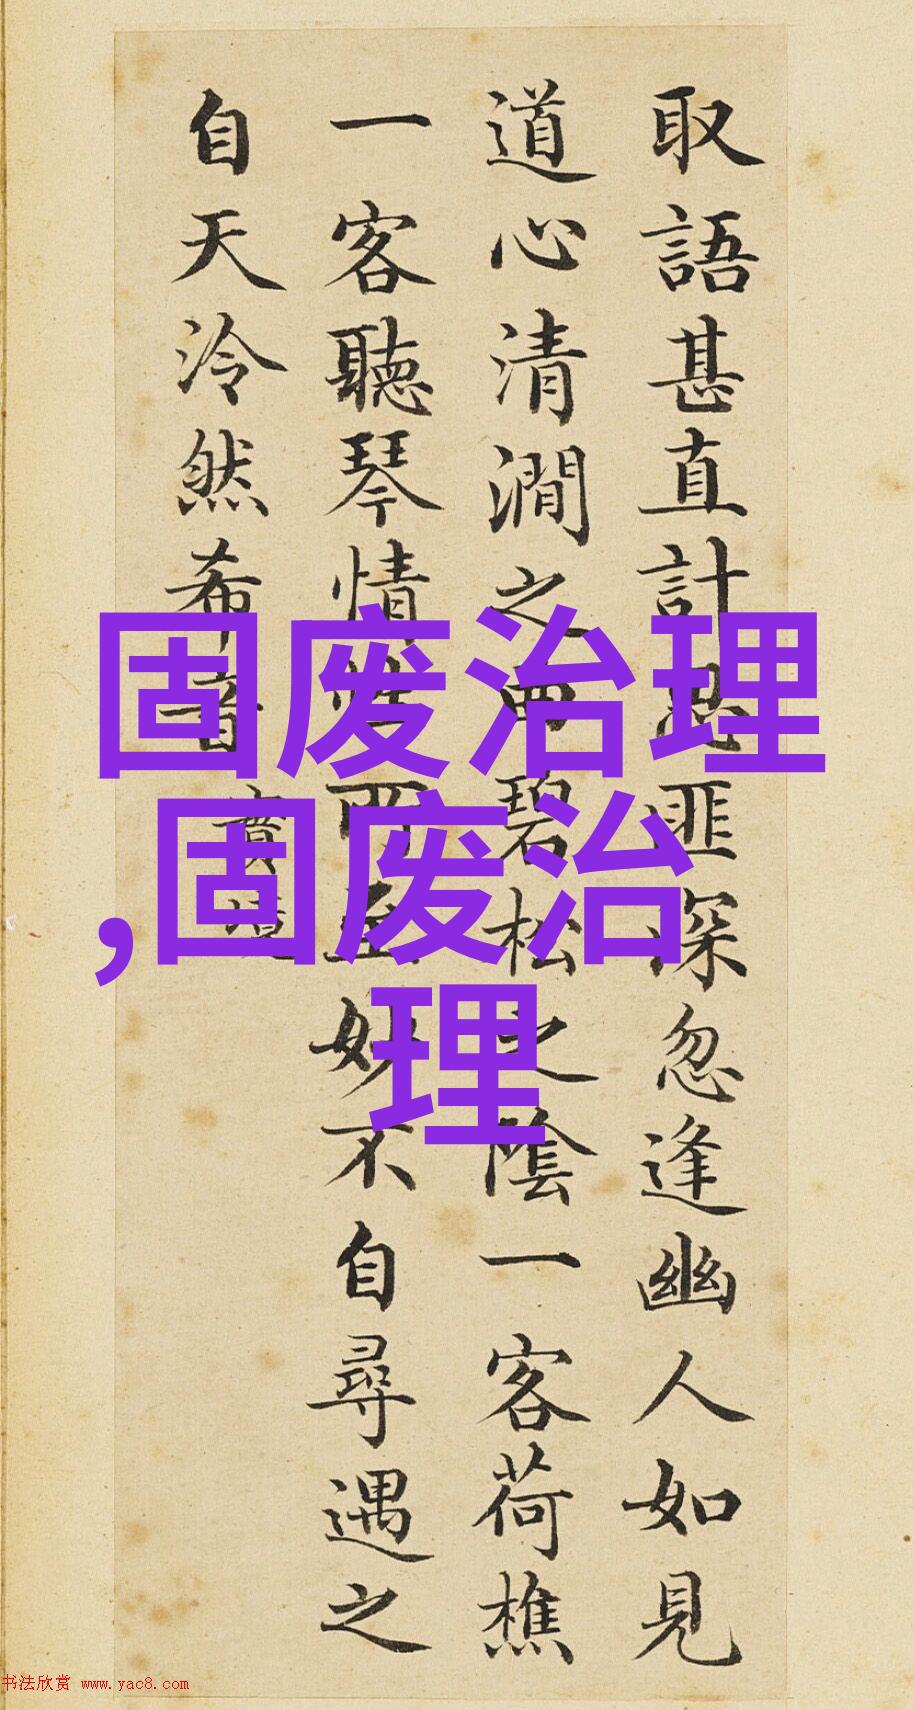 取語甚直計思匪深忽逢幽人如見
道心清澗之曲碧松之陰一客荷樵
一客聽琴情性所至妙不自尋遇之
自天泠然希音
實境
固废治理
,固废治
理
书法欣赏 www.yac8.com